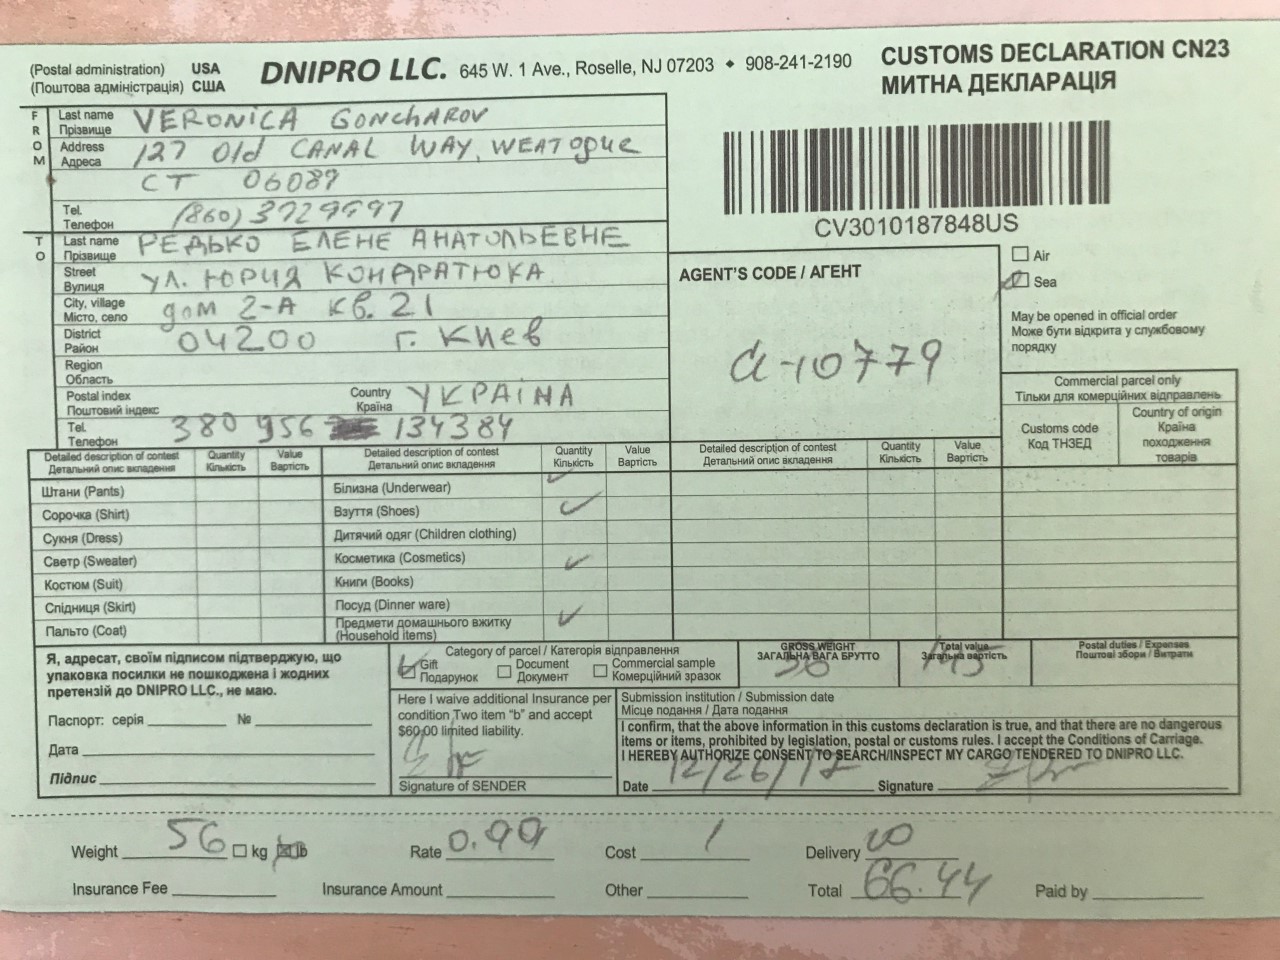 (Postal administration) USA
(Поштова адміністрація) США
DNIPRO LLC. 645 W. 1 Ave., Roselle, NJ 07203 ◆ 908-241-2190
CUSTOMS DECLARATION CN23
МИТНА ДЕКЛАРАЦІЯ
CV3010187848US
FROM
Last name VERONICA GONCHAROV
Прізвище
Address 127 Old CANAL WAY, WEATOGUE
Адреса
CT 06089
Tel. (860)
Телефон
TO
Last name РЕДЬКО ЕЛЕНЕ АНАТОЛЬЕВНЕ
Прізвище
Street УЛ. ЮРИЯ КОНДРАТЮКА
Вулиця
City, village дом 2-А кв. 21
Місто, село
District 04200 г. Киев
Район
Region
Область
Postal index Country УКРАІНА
Поштовий індекс Країна
Tel. 380 956 134384
Телефон
AGENT'S CODE / АГЕНТ
a-10779
Air
Sea
May be opened in official order
Може бути відкрита у службовому
порядку
Commercial parcel only
Тільки для комерційних відправлень
Customs code
Код ТНЗЕД
Country of origin
Країна
походження
товарів
Detailed description of contest Quantity Value Detailed description of contest Quantity Value Detailed description of contest Quantity Value
Детальний опис вкладення Кількість Вартість Детальний опис вкладення Кількість Вартість Детальний опис вкладення Кількість Вартість
Штани (Pants) Білизна (Underwear)
Сорочка (Shirt) Взуття (Shoes)
Сукня (Dress) Дитячий одяг (Children clothing)
Светр (Sweater) Косметика (Cosmetics)
Костюм (Suit) Книги (Books)
Спідниця (Skirt) Посуд (Dinner ware)
Пальто (Coat) Предмети домашнього вжитку
(Household items)
Я, адресат, своїм підписом підтверджую, що
упаковка посилки не пошкоджена і жодних
претензій до DNIPRO LLC., не маю.
Паспорт: серія № 
Дата
Підпис
Category of parcel / Категорія відправлення
Gift Document Commercial sample
Подарунок Документ Комерційний зразок
GROSS WEIGHT
ЗАГАЛЬНА ВАГА БРУТТО
Total value
Загальна вартість
Postal duties / Expenses
Поштові збори / Витрати
Here I waive additional Insurance per
condition Two item "b" and accept
$60,00 limited liability.
Signature of SENDER
Submission institution / Submission date
Місце подання / Дата подання
I confirm, that the above information in this customs declaration is true, and that there are no dangerous
items or items, prohibited by legislation, postal or customs rules. I accept the Conditions of Carriage.
I HEREBY AUTHORIZE CONSENT TO SEARCH/INSPECT MY CARGO TENDERED TO DNIPRO LLC.
Date 12/26/17 Signature
Weight 56 kg lb Rate 0.99 Cost 1 Delivery 10
Insurance Fee Insurance Amount Other Total 66.44 Paid by